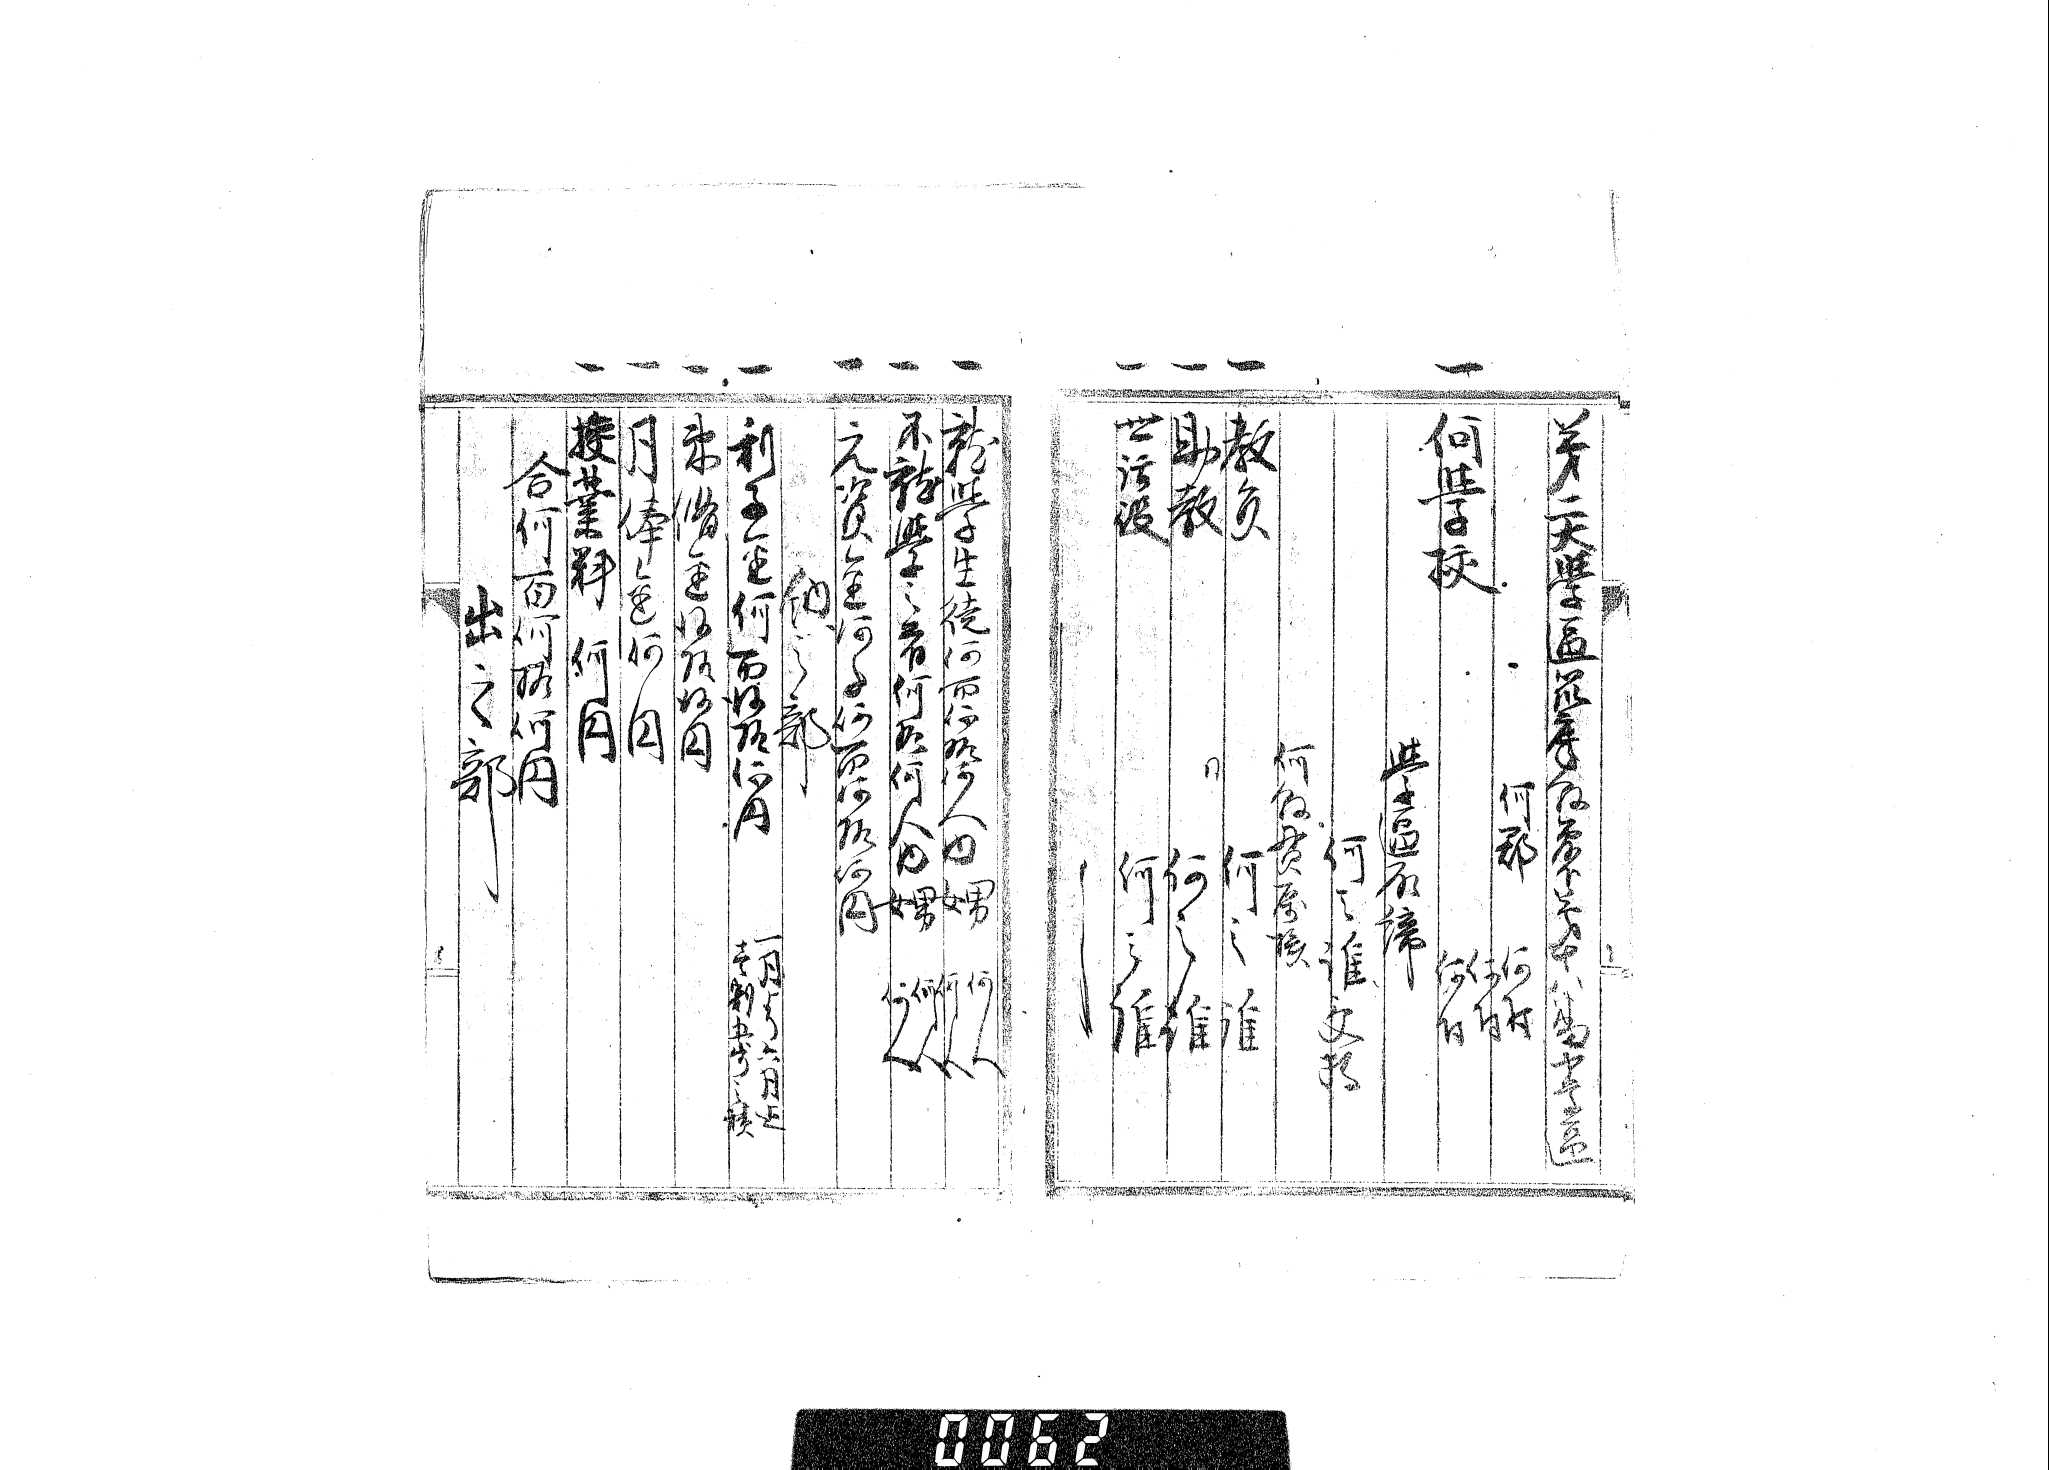 第二大學區筑摩縣管下第十八番中學區
何郡 何村
何村
何村
一 何學校
學區取締
何之誰文移
何縣貫屬族
一 教員 何之誰
一 助教 同 何之誰
一 世话役 何之誰
一 就學生徒何百何拾何人内 男女 何人 何人
一 不就學之者何拾何人内 男女 何人 何人
一 元資金何千何百何拾何円
納之部
一 利子金何百何拾何円
一月ゟ六月迄
一 束脩金何拾何円
一 月俸金何円
一 授業料 何円
合何百何拾何円
出之部
0062